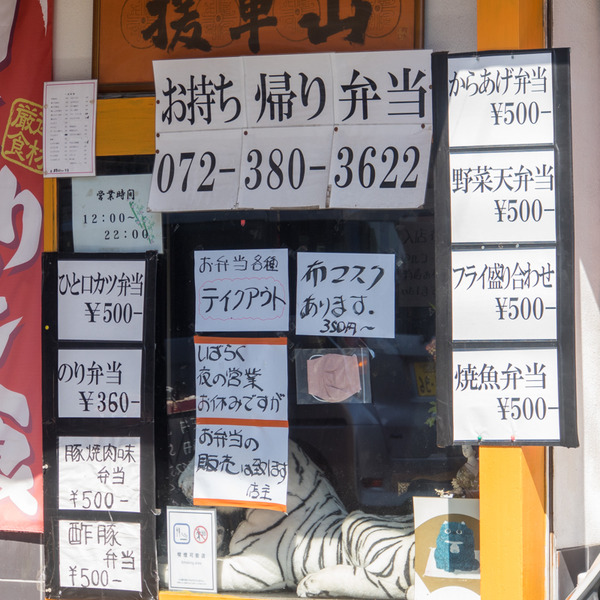 援軍山
お持ち帰り弁当
072-380-3622
営業時間
12:00-
22:00
厳選
食材
ひと口カツ弁当
¥500-
のり弁当
¥360-
豚焼肉味
弁当
¥500-
酢豚
弁当
¥500-
お弁当各種
テイクアウト
布マスク
あります.
380円~
しばらく
夜の営業
お休みですが
お弁当の
販売は致します
店主
からあげ弁当
¥500-
野菜天弁当
¥500-
フライ盛り合わせ
¥500-
焼魚弁当
¥500-